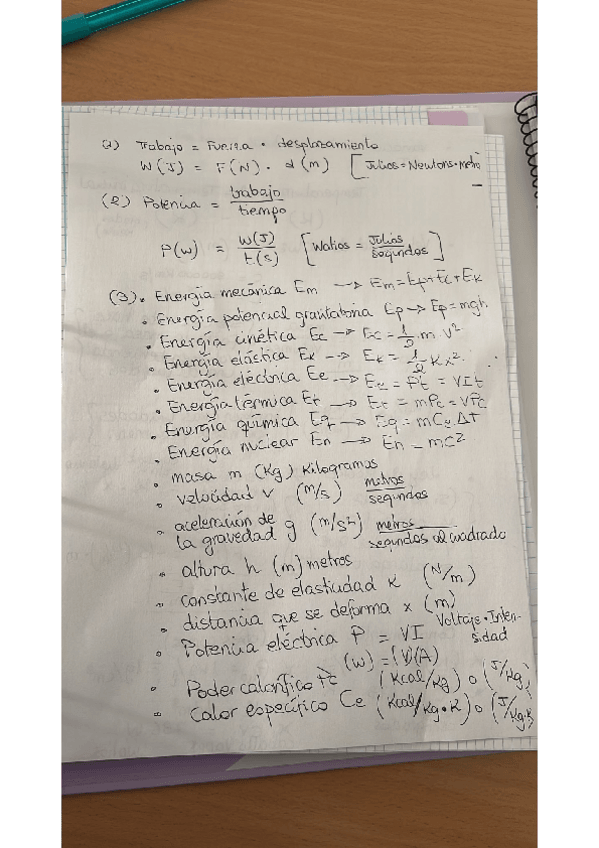 (1) Trabajo = Fuerza · desplazamiento
W(J) = F(N) · d(m) [Julios = Newtons·metro
(2) Potencia = trabajo/tiempo
P(w) = W(J)/t(s) [Watios = Julios/segundos]
(3). Energía mecánica Em → Em = Ep + Ec + Ek
· Energía potencial gravitatoria Ep → Ep = mgh
· Energía cinética Ec → Ec = 1/2 · m · v²
· Energía elástica Ek → Ek = 1/2 K x²
· Energía eléctrica Ee → Ee = Pt = VIt
· Energía térmica Et → Et = mPc = VPc
· Energía química Eq → Eq = mCe ΔT
· Energía nuclear En → En = mc²
· masa m (Kg) Kilogramos
· velocidad v (m/s) metros/segundos
· aceleración de
la gravedad g (m/s²) metros/segundos al cuadrado
· altura h (m) metros
· constante de elasticidad K (N/m)
· distancia que se deforma x (m)
· Potencia eléctrica P = VI Voltaje·Inten-
sidad
(w) = (V)(A)
· Poder calorífico Pc (Kcal/Kg) o (J/Kg)
· Calor específico Ce (Kcal/Kg·K) o (J/Kg·K)